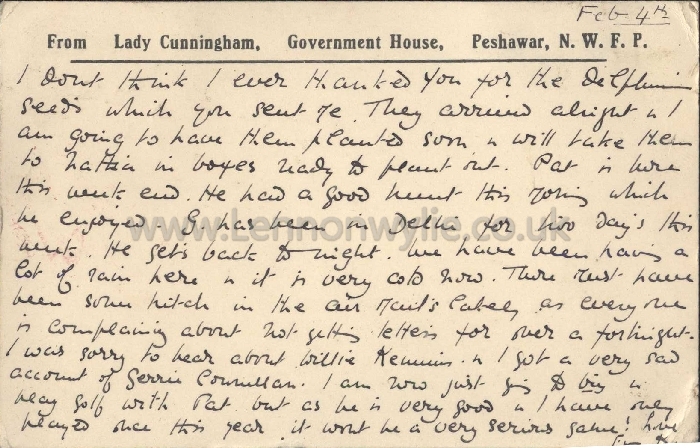 Feb 4th
From Lady Cunningham, Government House, Peshawar, N. W. F. P.
I dont think I ever thanked you for the delphinium
seeds which you sent me. They arrived alright & I
am going to have them planted soon & will take them
to Nathia in boxes ready to plant out. Pat is here
this week end. He had a good hunt this morning which
he enjoyed. G. has been in Delhi for two days this
week. He gets back to night. We have been having a
lot of rain here & it is very cold now. There must have
been some hitch in the air mails lately as everyone
is complaining about not getting letters for over a fortnight.
I was sorry to hear about Willie & I got a very sad
account of Gerrie. I am now just going to try &
play golf with Pat but as he is very good & I have only
played once this year it wont be a very serious game! Love
www.Lennonwylie.co.uk